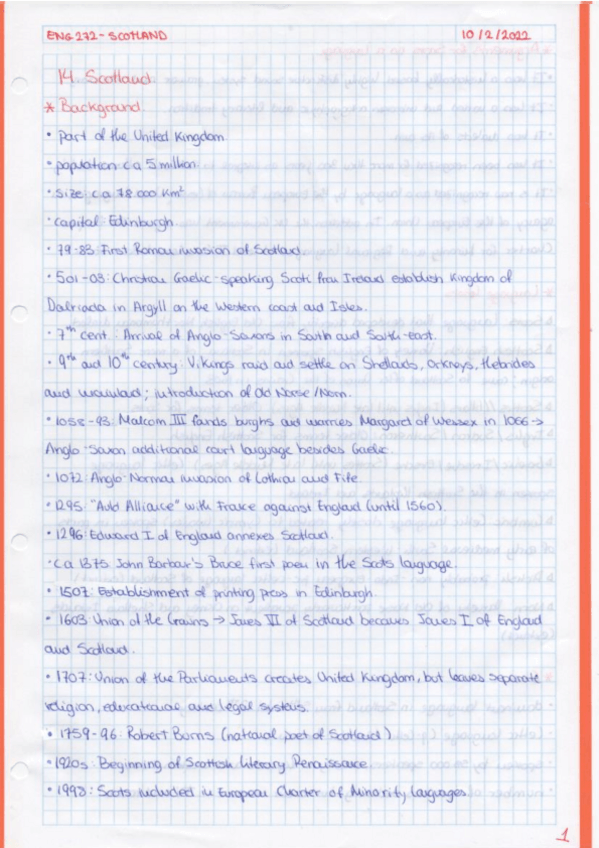 ENG 272 - SCOTLAND 10/2/2022
14. Scotland
* Background
• Part of the United Kingdom
• population: ca 5 million
• Size: ca 78 000 Km²
• Capital: Edinburgh
• 79-83: First Roman invasion of Scotland.
• 501-03: Christian Gaelic-speaking Scoti from Ireland establish Kingdom of
Dalriada in Argyll on the Western coast and Isles.
• 7th cent.: Arrival of Anglo-Saxons in South and South-east.
• 9th and 10th century: Vikings raid and settle on Shetlands, Orkneys, Hebrides
and mainland; introduction of Old Norse/Norn.
• 1058-93: Malcom III founds burghs and marries Margaret of Wessex in 1066 →
Anglo-Saxon additional court language besides Gaelic.
• 1072: Anglo-Norman invasion of Lothian and Fife.
• 1295: "Auld Alliance" with France against England (until 1560).
• 1296: Edward I of England annexes Scotland.
• Ca 1375 John Barbour's Bruce first poem in the Scots language.
• 1507: Establishment of printing press in Edinburgh.
• 1603 Union of the Crowns → James VI of Scotland becomes James I of England
and Scotland.
• 1707: Union of the Parliaments creates United Kingdom, but leaves separate
religion, educational and legal systems.
• 1759-96: Robert Burns (national poet of Scotland)
• 1920s: Beginning of Scottish Literary Renaissance
• 1998: Scots included in European Charter of Minority Languages.
1